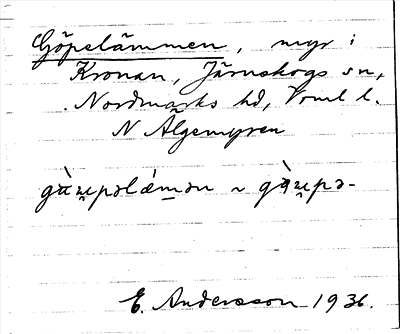 Göpelämmen, myr i
Kronan, Järnskogs sn,
Nordmarks hd, Vrml l.
N Älgemyren
gàu̯pəlǽmən ~ gàu̯pə-
E. Andersson 1936.